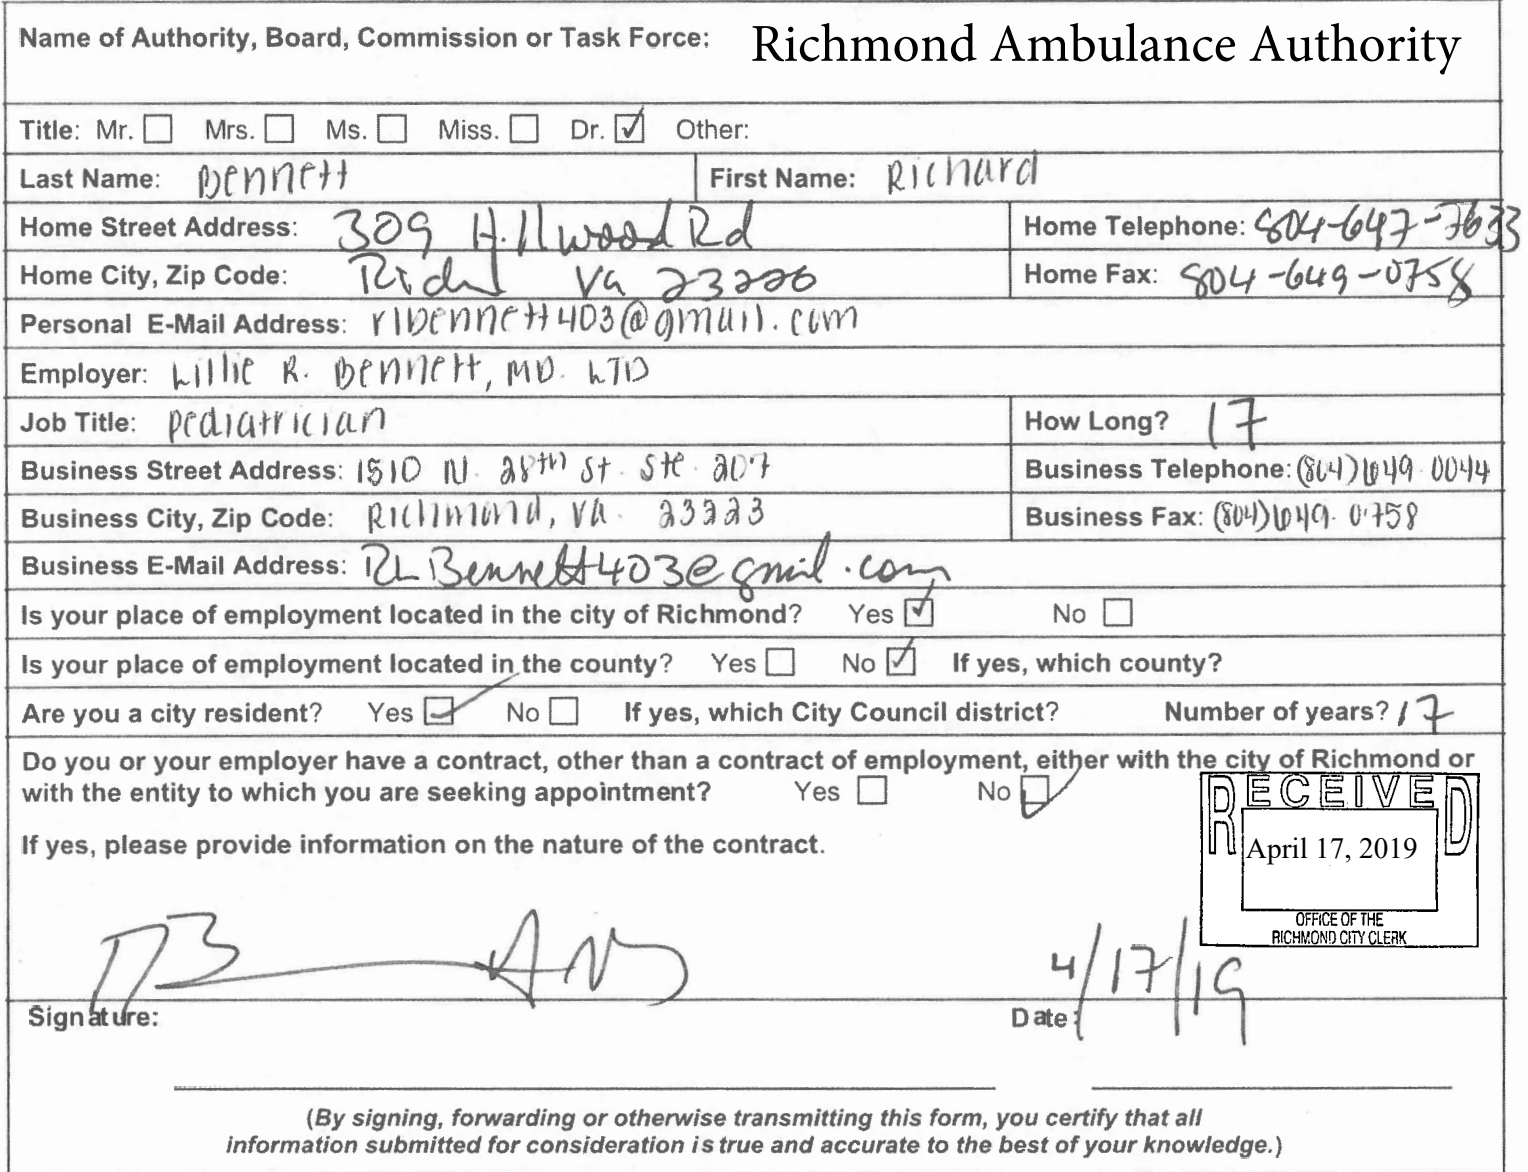 Name of Authority, Board, Commission or Task Force: Richmond Ambulance Authority
Title: Mr. Mrs. Ms. Miss. Dr. ✓ Other:
Last Name: Bennett First Name: Richard
Home Street Address: 309 Hillwood Rd Home Telephone: 804-647-7633
Home City, Zip Code: Rich Va 23226 Home Fax: 804-649-0758
Personal E-Mail Address: rlbennett403@gmail.com
Employer: Lillie R. Bennett, MD. LTD
Job Title: Pediatrician How Long? 17
Business Street Address: 1510 N. 28th St. Ste. 207 Business Telephone: (804)649-0044
Business City, Zip Code: Richmond, Va. 23223 Business Fax: (804)649-0758
Business E-Mail Address: RLBennett403@gmail.com
Is your place of employment located in the city of Richmond? Yes ✓ No
Is your place of employment located in the county? Yes No ✓ If yes, which county?
Are you a city resident? Yes ✓ No If yes, which City Council district? Number of years? 17
Do you or your employer have a contract, other than a contract of employment, either with the city of Richmond or
with the entity to which you are seeking appointment? Yes No ✓
RECEIVED
If yes, please provide information on the nature of the contract.
April 17, 2019
OFFICE OF THE
RICHMOND CITY CLERK
4/17/19
Signature: Date:
(By signing, forwarding or otherwise transmitting this form, you certify that all
information submitted for consideration is true and accurate to the best of your knowledge.)